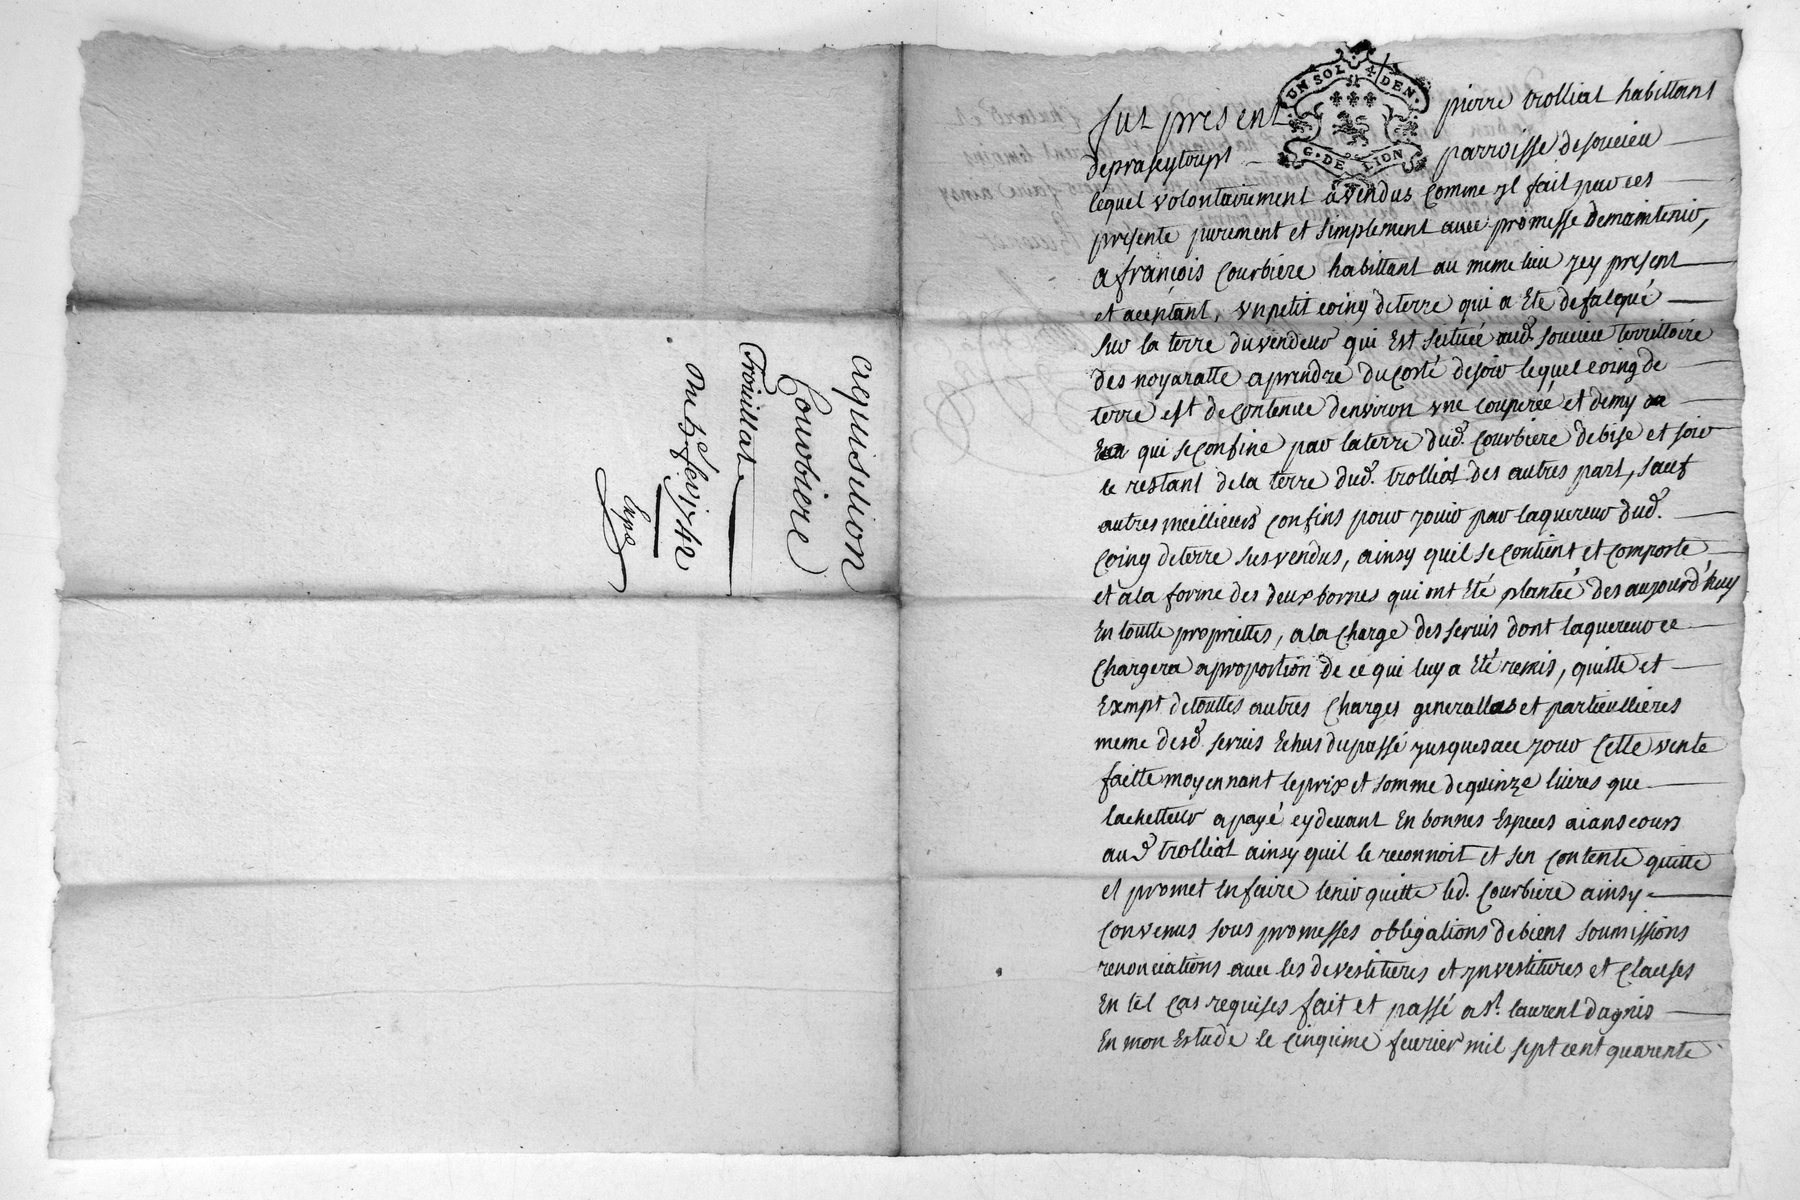 aquisition
Courbiere
Trouillat
Du 5e fev. 1742
Exp.
UN SOL 4 DEN.
G. DE LION
fut present pierre trolliat habittant
parroisse de soucieu
lequel volontairement a vendus comme yl fait par ces
presente purement et simplement avec promesse de maintenir,
a françois Courbière habittant au meme lieu yey present
et aceptant, vn petit coing de terre qui a Eté defalqué
sur la terre du vendeur qui Est scituée aud. soucieu territtoire
des noyaratte a prendre du costé de soir lequel coing de
terre est de contenue denviron vne couperée et demy
qui se confine par la terre dud. Courbière de bise et soir
le restant de la terre dud. trolliat des autres part, sauf
autres meillieurs confins pour jouir par laquereur dud.
Coing de terre sus vendus, ainsy quil se contient et comporte
et a la forme des deux bornes qui ont Eté plantée des aujourd'huy
En toutte propriettes, a la charge des servis dont laquereur ce
Chargera a proportion de ce qui luy a Eté remis, quitte et
Exempt de touttes autres Charges generalles et particullieres
meme desd. servis Echus du passé jusques a ce jour Cette vente
faitte moyennant le prix et somme de quinze livres que
lachetteur a payé cy devant En bonnes Especes aians cours
aud. trolliat ainsy quil le reconnoit et sen contente quitte
et promet En faire tenir quitte led. Courbiere ainsy
Convenus sous promesses obligations de biens soumissions
renonciations avec les devestitures et ynvestitures et Clauses
En tel cas requises fait et passé a St. laurent dagnis
En mon Estude le Cinquieme fevrier mil sept cent quarente